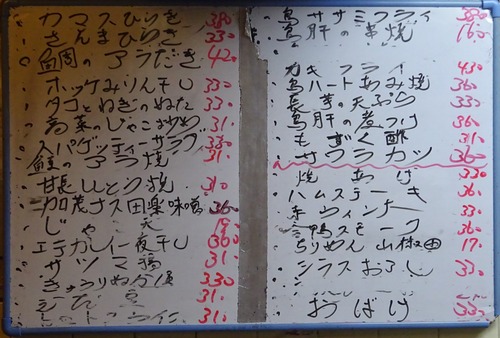 カマスひらき 380
さんまひらき 330
アラだき 420
ホッケみりん干し 330
タコとねぎのぬた 330
高菜のじゃこ炒め 310
スパゲッティーサラダ 330
鮭のアラ焼 310
甘長しとう焼 310
加茂ナス田楽味噌 360
じゃこ天
エテガレイ一夜干し 360
サツマ揚 310
きゅうりぬか漬 330
310
310
鳥ササミフライ 380
鳥肝の串焼 160
カキフライ 430
鳥ハートあみ焼 360
長芋の天ぷら 330
鳥肝の煮つけ 360
もずく酢 310
サワラカツ 360
焼あげ 330
ハムステーキ 360
赤ウィンナー 330
鴨スモーク 360
ちりめん山椒 170
シラスおろし 330
おばけ 330